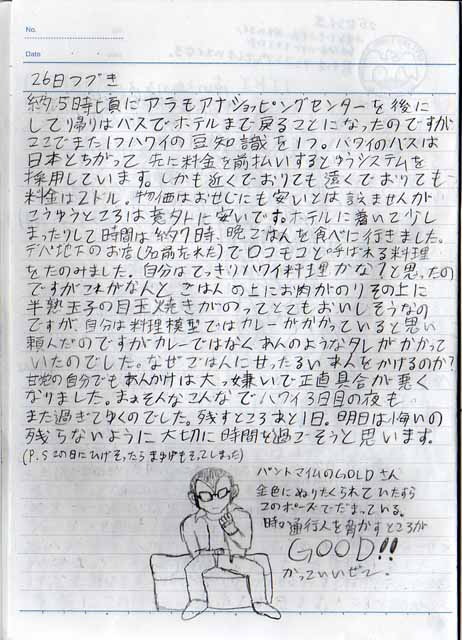 No.
Date
26日つづき
約5時頃にアラモアナショッピングセンターを後に
して帰りはバスでホテルまで戻ることになったのですが
ここでまた1つハワイの豆知識を1つ。ハワイのバスは
日本とちがって先に料金を前払いするとゆうシステムを
採用しています。しかも近くでおりても遠くでおりても
料金は2ドル。物価はおせじにも安いとは言えませんが
こうゆうところは案外に安いです。ホテルに着いて少し
まったりして時間は約7時、晩ごはんを食べに行きました。
デパ地下のお店(名前を忘れた)でロコモコと呼ばれる料理
をたのみました。自分はてっきりハワイ料理かな?と思ったの
ですがこれがなんと ごはんの上にお肉がのりその上に
半熟玉子の目玉焼きがのってとてもおいしそうなの
ですが、自分は料理模型ではカレーがかかっていると思い
頼んだのですがカレーではなくあんのようなタレがかかって
いたのでした。なぜごはんに甘ったるいあんをかけるのか?
甘党の自分でもあんかけは大っ嫌いで正直具合が悪く
なりました。まぁそんなこんなでハワイ3日目の夜も
また過ぎてゆくのでした。残すところあと1日。明日は悔いの
残らないように大切に時間を過ごそうと思います。
(P.S この日にひげそったらまゆげもそってしまった)
パントマイムのGOLDさん
金色にぬりたくられていたすら
このポーズでだまっている。
時々通行人を脅かすところが
GOOD!!
かっていいぜー。